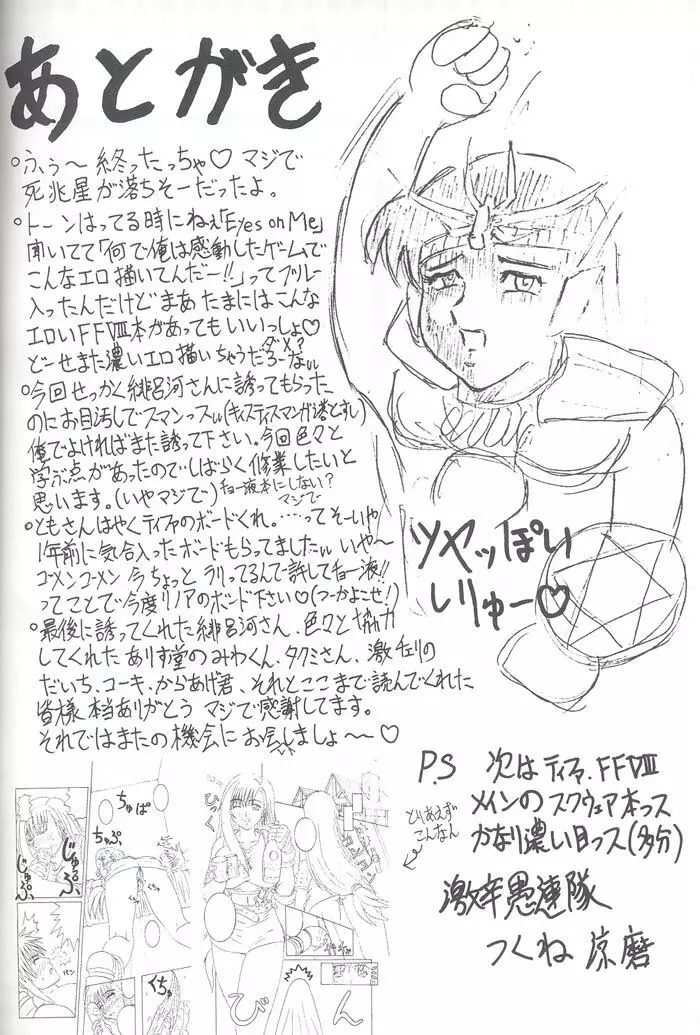 あとがき
○ふぅ〜 終ったっちゃ♡ マジで
死兆星が落ちそーだったよ。
○トーンはってる時にねぇ「Eyes on Me」
聞いてて「何で俺は感動したゲームで
こんなエロ描いてんだー!!」ってブルー
入ったんだけどまあ たまにはこんな
エロいFFⅧ本があってもいいっしょ♡
ダメ?
どーせまた濃いエロ描いちゃうだろーなぃぃ
○今回せっかく緋呂河さんに誘ってもらった
のにお目汚しでスマンっスぃぃ
俺でよければまた誘って下さい。今回色々と
学ぶ点があったのでしばらく修業したいと
思います。(いやマジで)
チョー液本にしない?
マジで
○ともさんはやくティファのボードくれ。……ってそーいや
1年前に気合入ったボードもらってましたぃぃ いや〜
ゴメンゴメン 今ちょっと ラリってるんで許してチョー液!!
ってことで今度リノアのボード下さい♡(つーかよこせ!)
○最後に誘ってくれた緋呂河さん、色々と協力
してくれた ありす堂のみわくん、タクミさん、激チェリの
だいち、コーキ、からあげ君、それとここまで読んでくれた
皆様 本当ありがとう マジで感謝してます。
それではまたの機会に お会いしましょ〜♡
ツヤッぽい
しりゅー♡
P.S 次は ティファ、FFⅧ
メインの スクウェア本っス
かなり濃い目っス(多分)
とりあえず
こんなん
激辛愚連隊
つくね 涼磨
じゅるっ
じゅぷ、
ちゅぱ
ちゅぷ、
ひっく
パン
くちゅ
びん